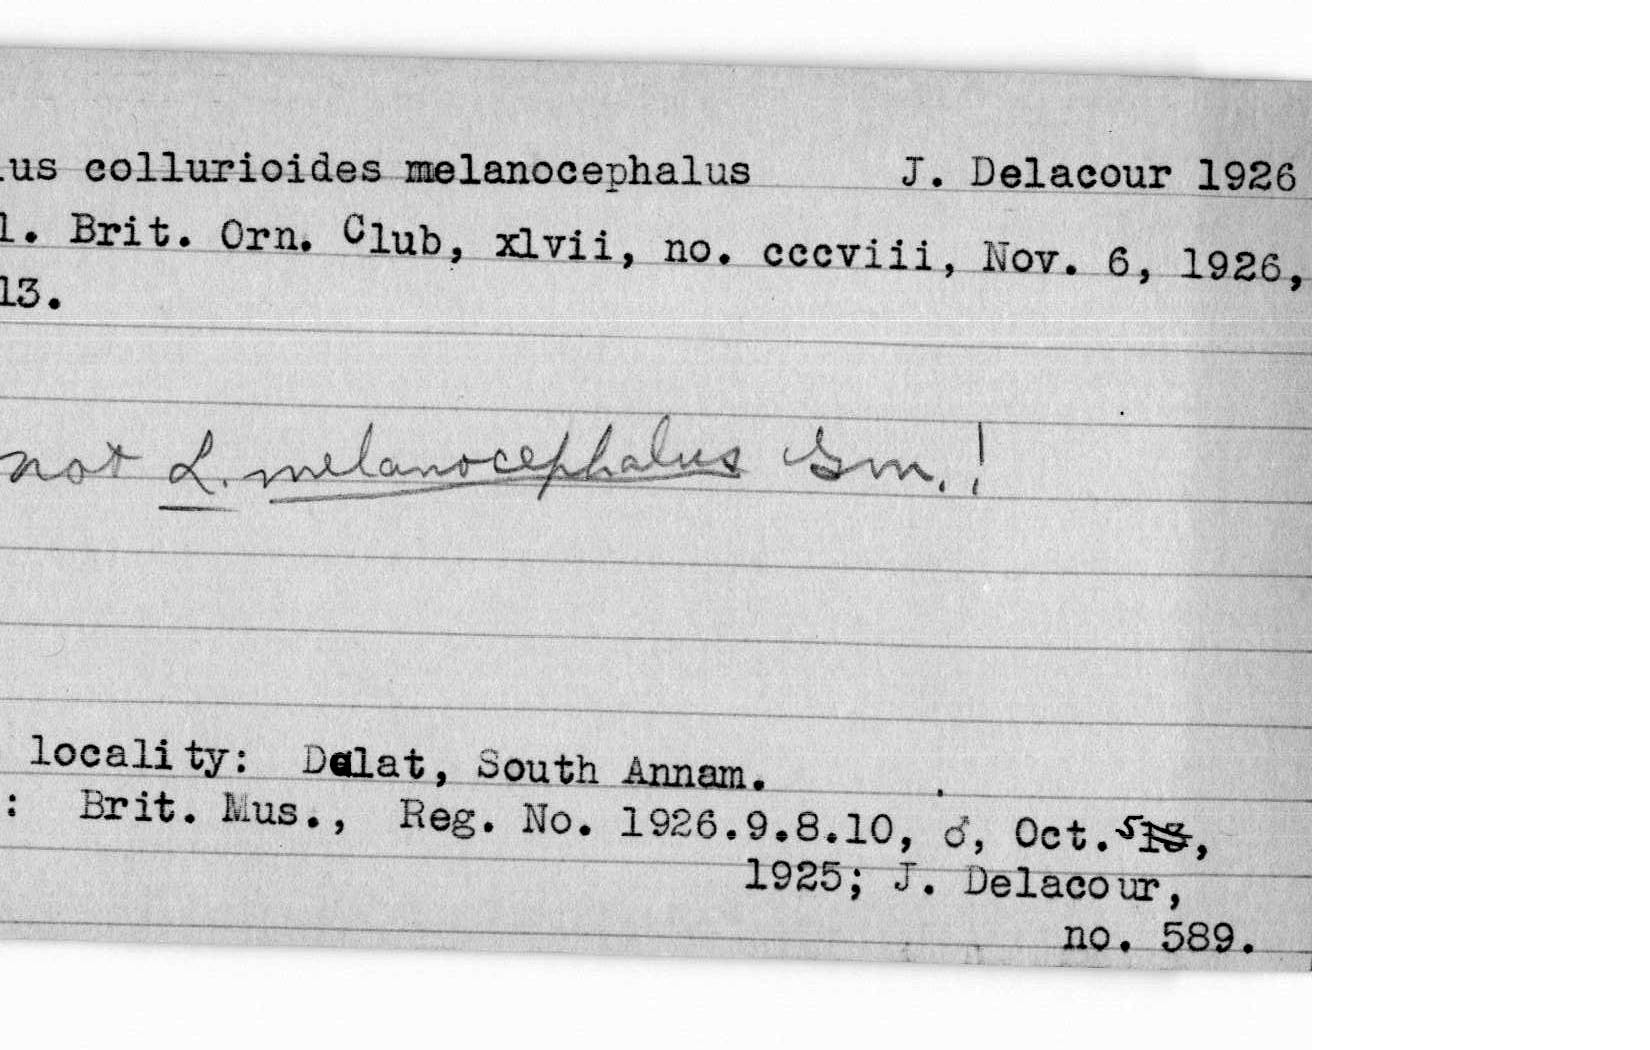 ius collurioides melanocephalus J. Delacour 1926
l. Brit. Orn. Club, xlvii, no. cccviii, Nov. 6, 1926,
13.
not L. melanocephalus Gm.!
locality: Dalat, South Annam.
: Brit. Mus., Reg. No. 1926.9.8.10, ♂, Oct. 5,
1925; J. Delacour,
no. 589.